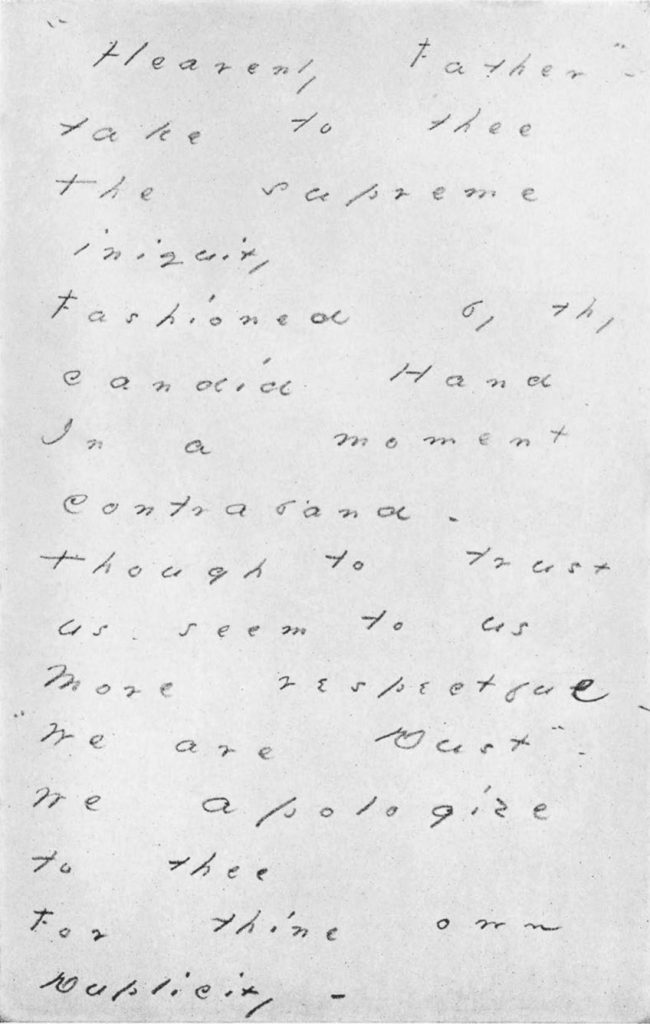 "Heavenly Father" -
take to thee
the supreme
iniquity
Fashioned by thy
candid Hand
In a moment
contraband -
Though to trust
us seem to us
More respectful -
"We are Dust" -
We apologize
to thee
For thine own
Duplicity -